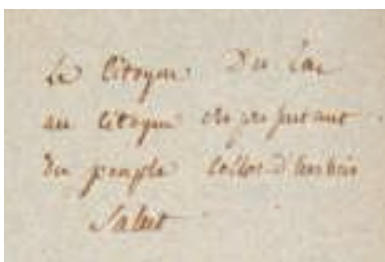 Le Citoyen Du
au Citoyen representant
du peuple Collot-d'herbois
Salut